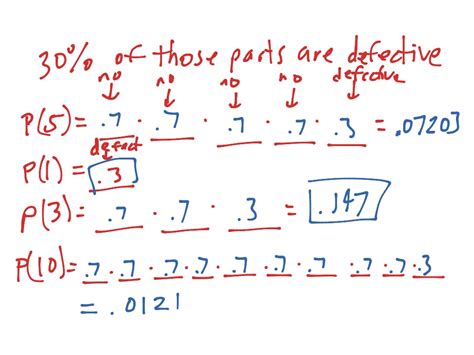 30% of those parts are defective
no no no no defective
P(5) = .7 · .7 · .7 · .7 · .3 = .07203
defect
P(1) = .3
P(3) = .7 · .7 · .3 = .147
P(10) = .7 · .7 · .7 · .7 · .7 · .7 · .7 .7 · .7 · .3
= .0121